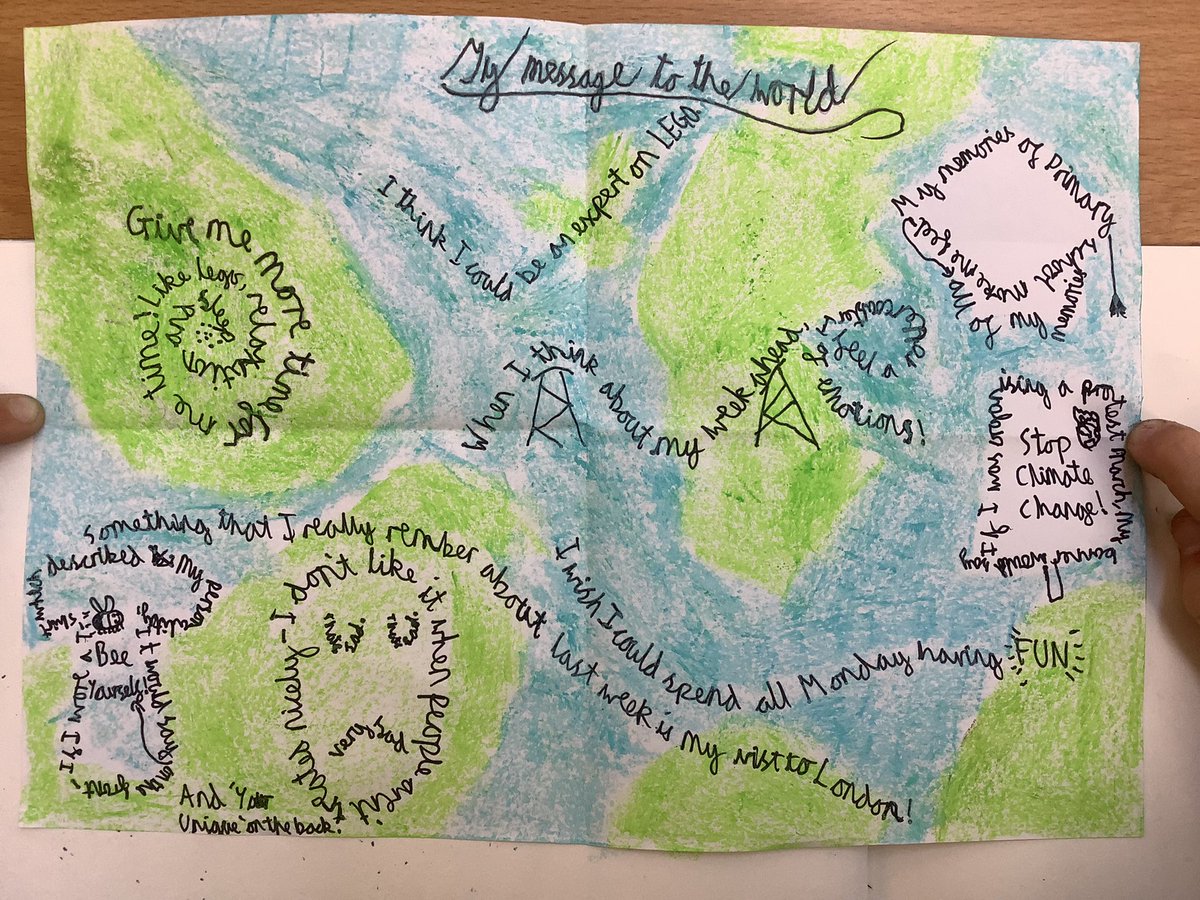 My message to the world
I think I could be an expert on LEGO
Give me more time for me time! Like Legos, relaxation and sleep
My memories of Primary school make me feel
of my
When I think about my week ahead, I feel a rollercoaster of emotions!
If I was organising a protest march, my banner would say
Stop
Climate
Change!
I wish I could spend all Monday having FUN
Something that I really rember about last week is my visit to London!
If I wore a t-shirt which described my personality, it would say on my front,
Bee
Yourself!
And "Your
Unique" on the back!
I don't like it when people aren't treated equally -
very very very very
very sad